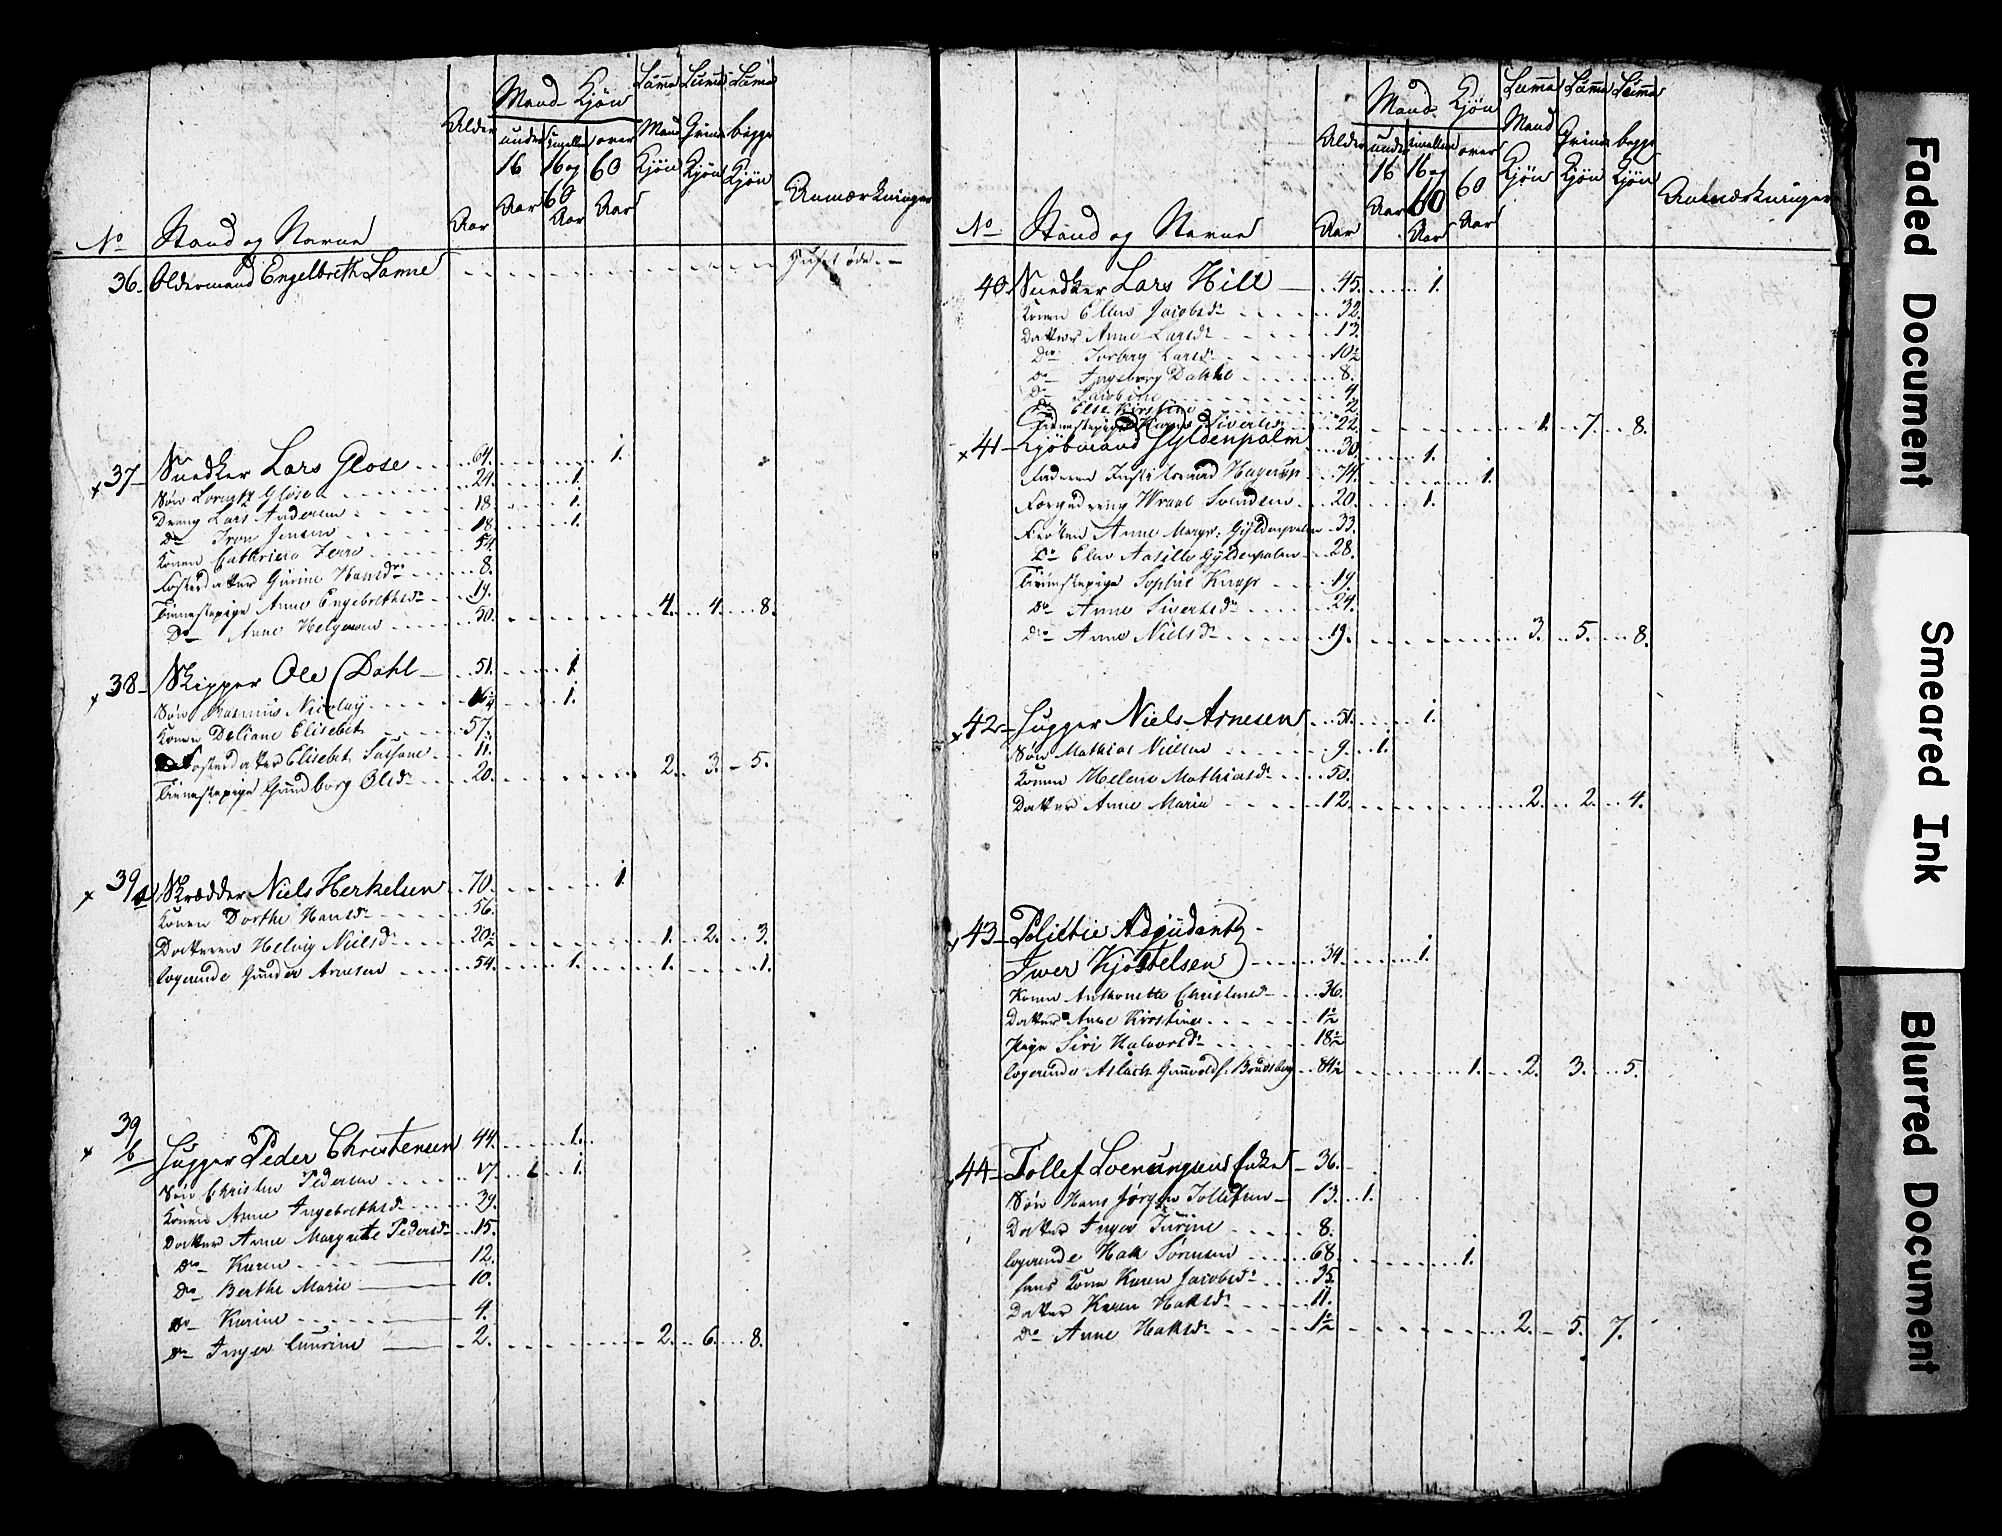 Mand Kjøn Summa Summa Summa
Alder under imellem over Mand Qvinde begge
16 16 og 60 Kjøn Kjøn Kjøn
Aar 60 Aar Anmærkninger
No Stand og Navne Aar Aar
36. Oldermand Engelbreth Lamne Huset øde.
37 Snedker Lars Glose 64. 1.
Søn Lorentz Glose 24. 1.
Dreng Lars Andersen 18. 1.
Do Iron Jensen 18. 1.
Konen Cathrina 54.
Fosterdatter Gurine Hansdr 8.
Tienestepige Anne Engebrethsdr 19.
Do Anne Helgesen 50. 4. 4. 8.
38 Skipper Ole Dahl 51. 1.
Søn Rasmus Nicolay 16¼ 1.
Konen Deliane Elisebet 57.
Fosterdatter Elisebet Susane 11.
Tienestepige Gundborg Olsdr 20. 2. 3. 5.
39 a Skrædder Niels Herkelsen 70. 1.
Konen Dorthe Hansdr 56.
Datteren Helvig Nielsdr 20½ 1. 2. 3.
logerende Gunder Arnesen 54. 1. 1. 1.
39
b Hugger Peder Christensen 44. 1.
Søn Christen Pedersen 17. 1.
Konen Anne Ingebrethsdr 39.
Datter Anne Margrete Pedersdr 15.
Do Karen 12.
Do Berthe Marie 10.
Do Karine 4.
Do Inger Laurine 2. 2. 6. 8.
Mand Kjøn Summa Summa Summa
Alder under imellem over Mand Qvinde begge
16 16 og 60 Kjøn Kjøn Kjøn
Aar 60 Aar Anmærkninger
No Stand og Navne Aar Aar
40 Snedker Lars Hill 45. 1.
Konen Ellen Jacobsdr 32.
Datter Anne Larsdr 13.
Do Torberg Larsdr 10½
Do Ingeborg Dakke 8.
Do Jacobine 4
Do Else Kirstine 2.
Tienestepige Karen Sivertsen 22. 1. 7. 8.
41 Kjøbmand Gyldenpalm 30. 1.
Faderen Justitsraad Hagerup 74. 1.
Farvedreng Wraal Svendsen 20. 1.
Frøken Anne Margr. Gyldenpalm 33.
Do Elen Aasille Gyldenpalm 28.
Tienestepige Sophie Knap 19.
Do Anne Sivertsdr 24.
Do Anne Nielsdr 19. 3. 5. 8.
42 Hugger Niels Arnesen 51. 1.
Søn Mathias Nielsen 9. 1.
Konen Helene Mathiasdr 50.
Datter Anne Maria 12. 2. 2. 4.
43 Politie Adjudant
Iwer Kjøstelsen 34. 1.
Konen Anthonette Christensdr 36.
Datter Anne Kirstine 1½
Pige Siri Halvorsdr 18½
logerende Aslach Gunvolds. Bradsberg 84½ 1. 2. 3. 5.
44 Tollef Lvenungsens Enke 36.
Søn Hans Jørgen Tollefsen 13. 1.
Datter Inger Turine 8.
logerende Hak Sørensen 68. 1.
hans Kone Karen Jacobsdr 35.
Datter Karen Haksdr 11.
Do Anne Haksdr 1½ 2. 5. 7.
Faded Document
Smeared Ink
Blurred Document